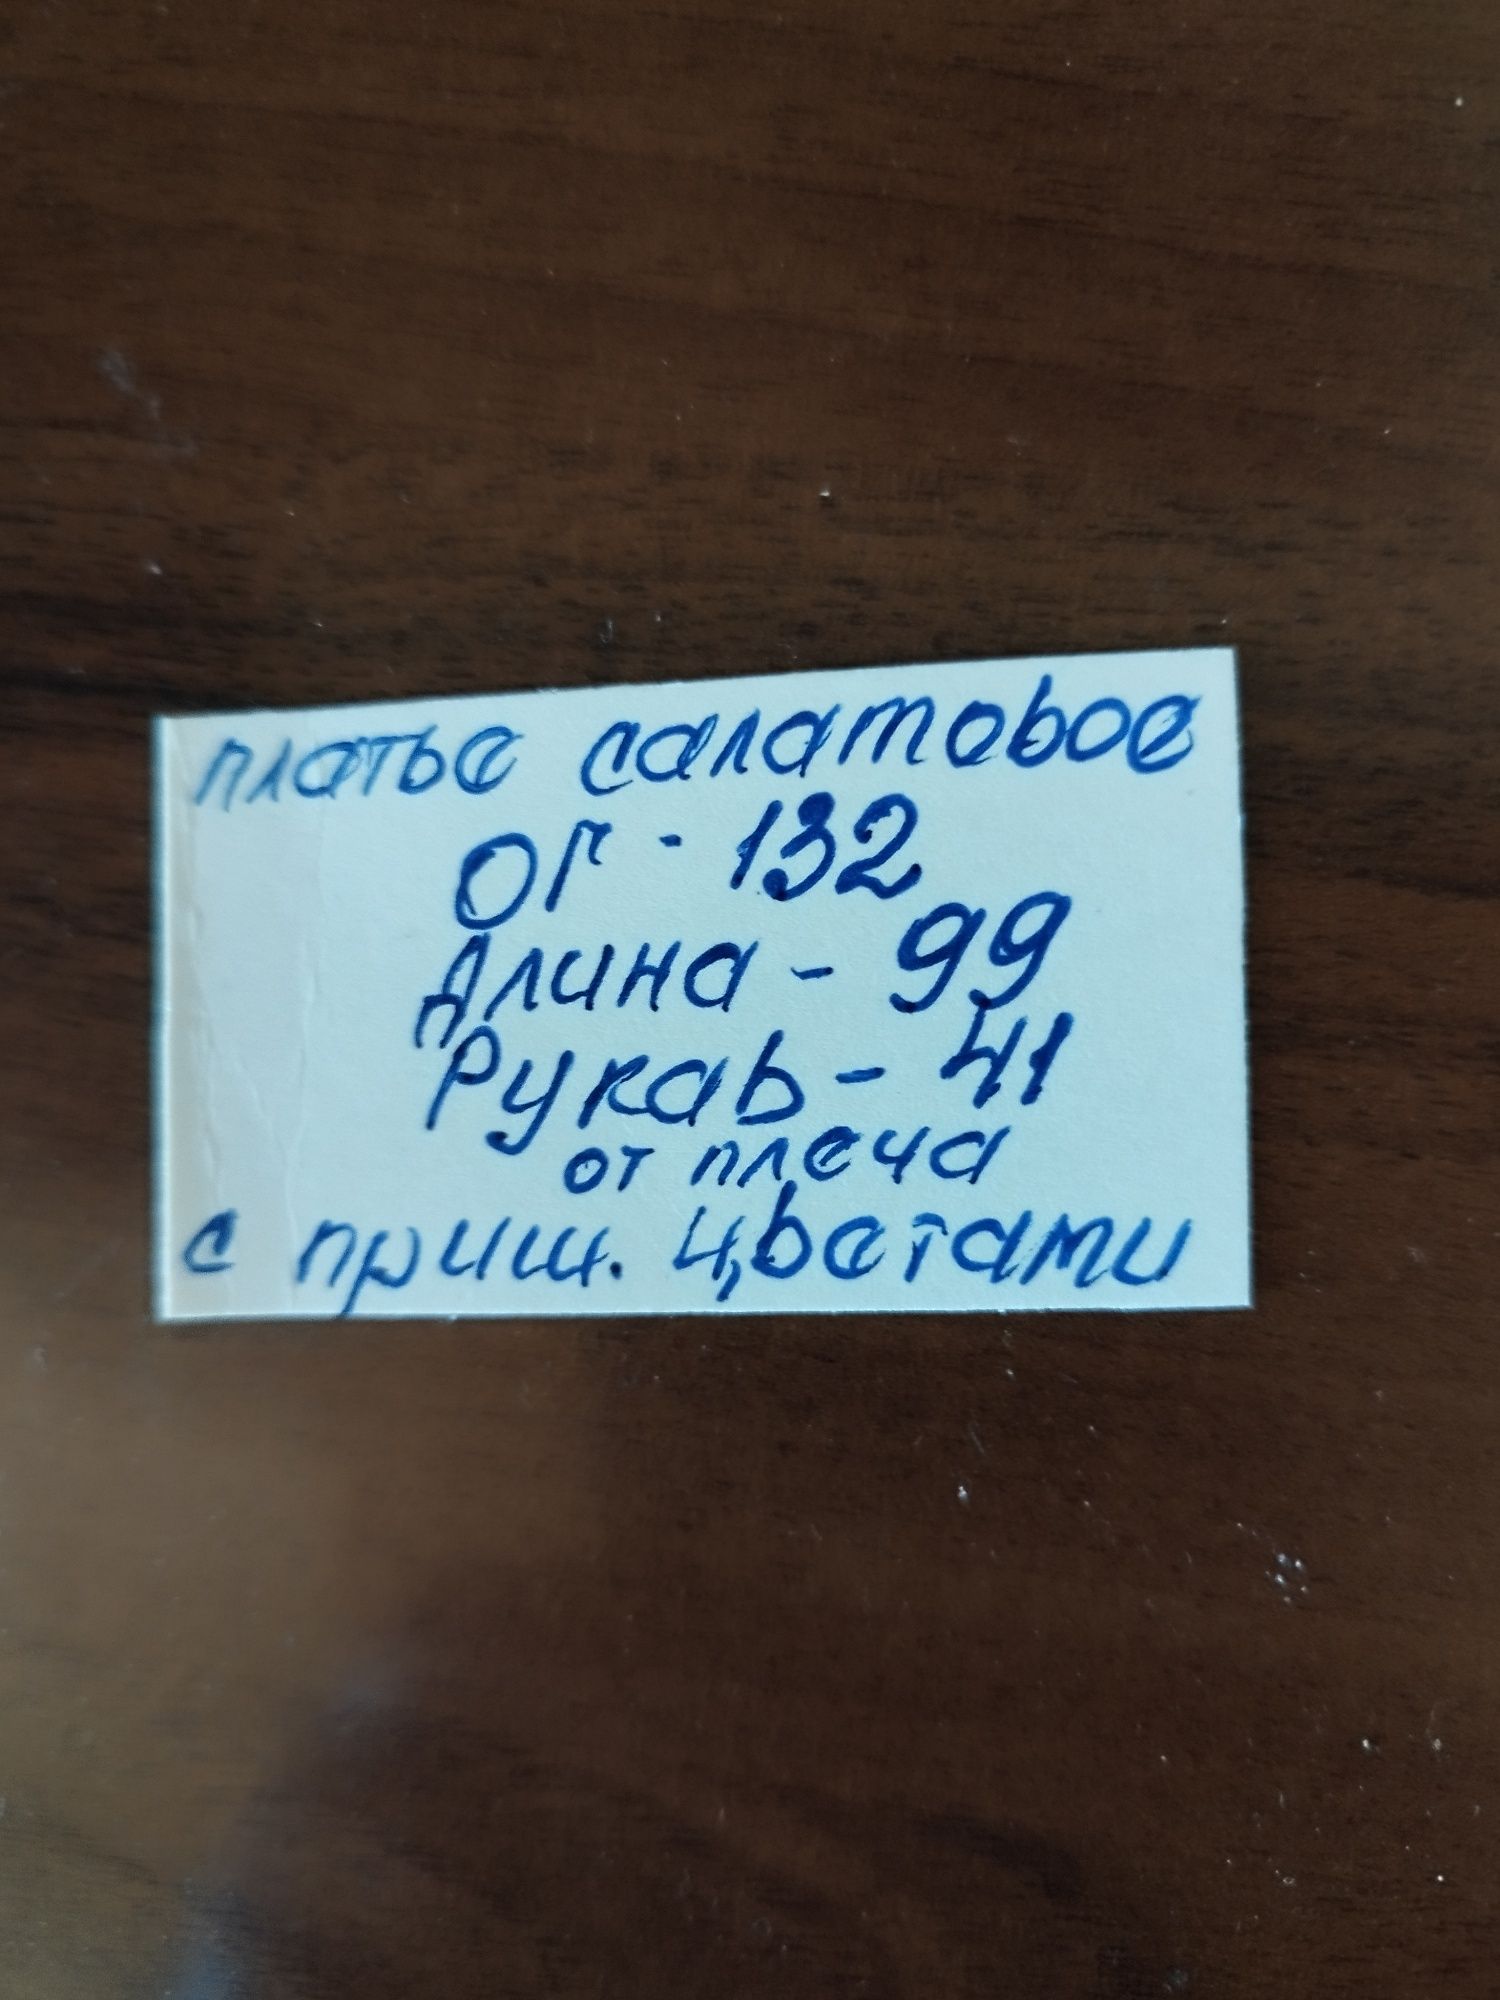 платье салатовое
ОГ - 132
Длина - 99
Рукав - 41
от плеча
с приш. цветами